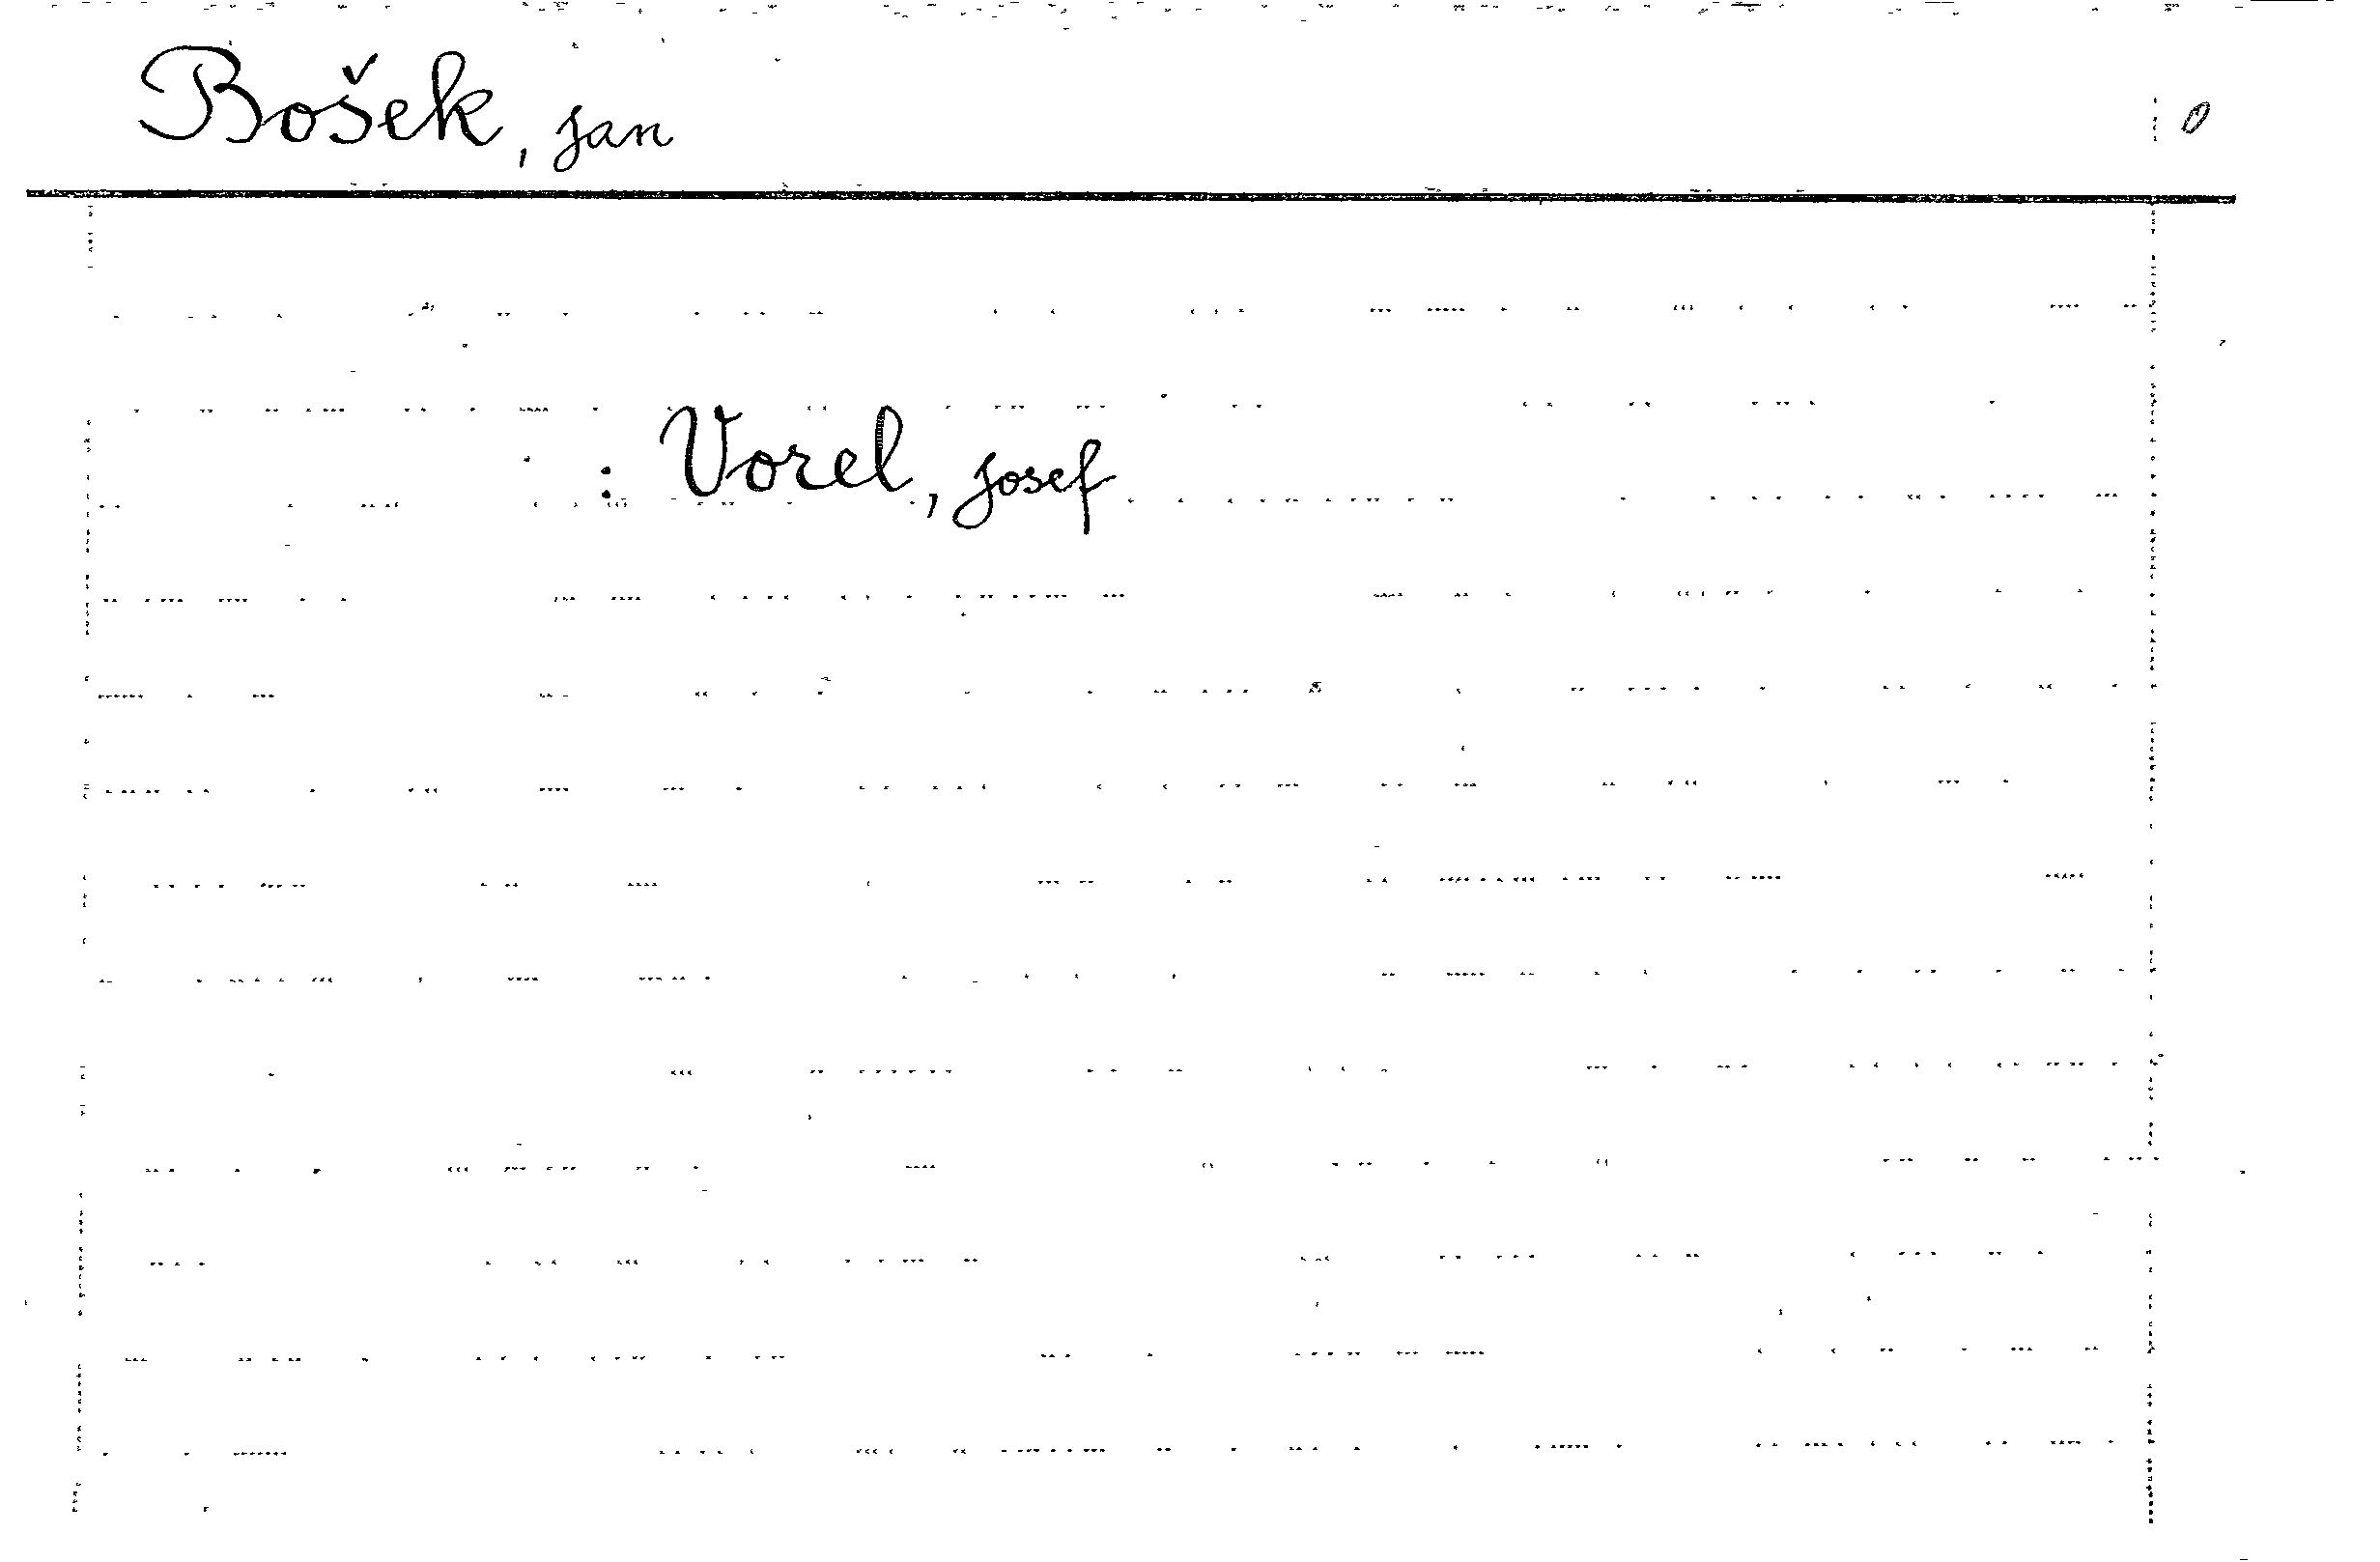 Bošek, Jan 0
: Vorel, Josef